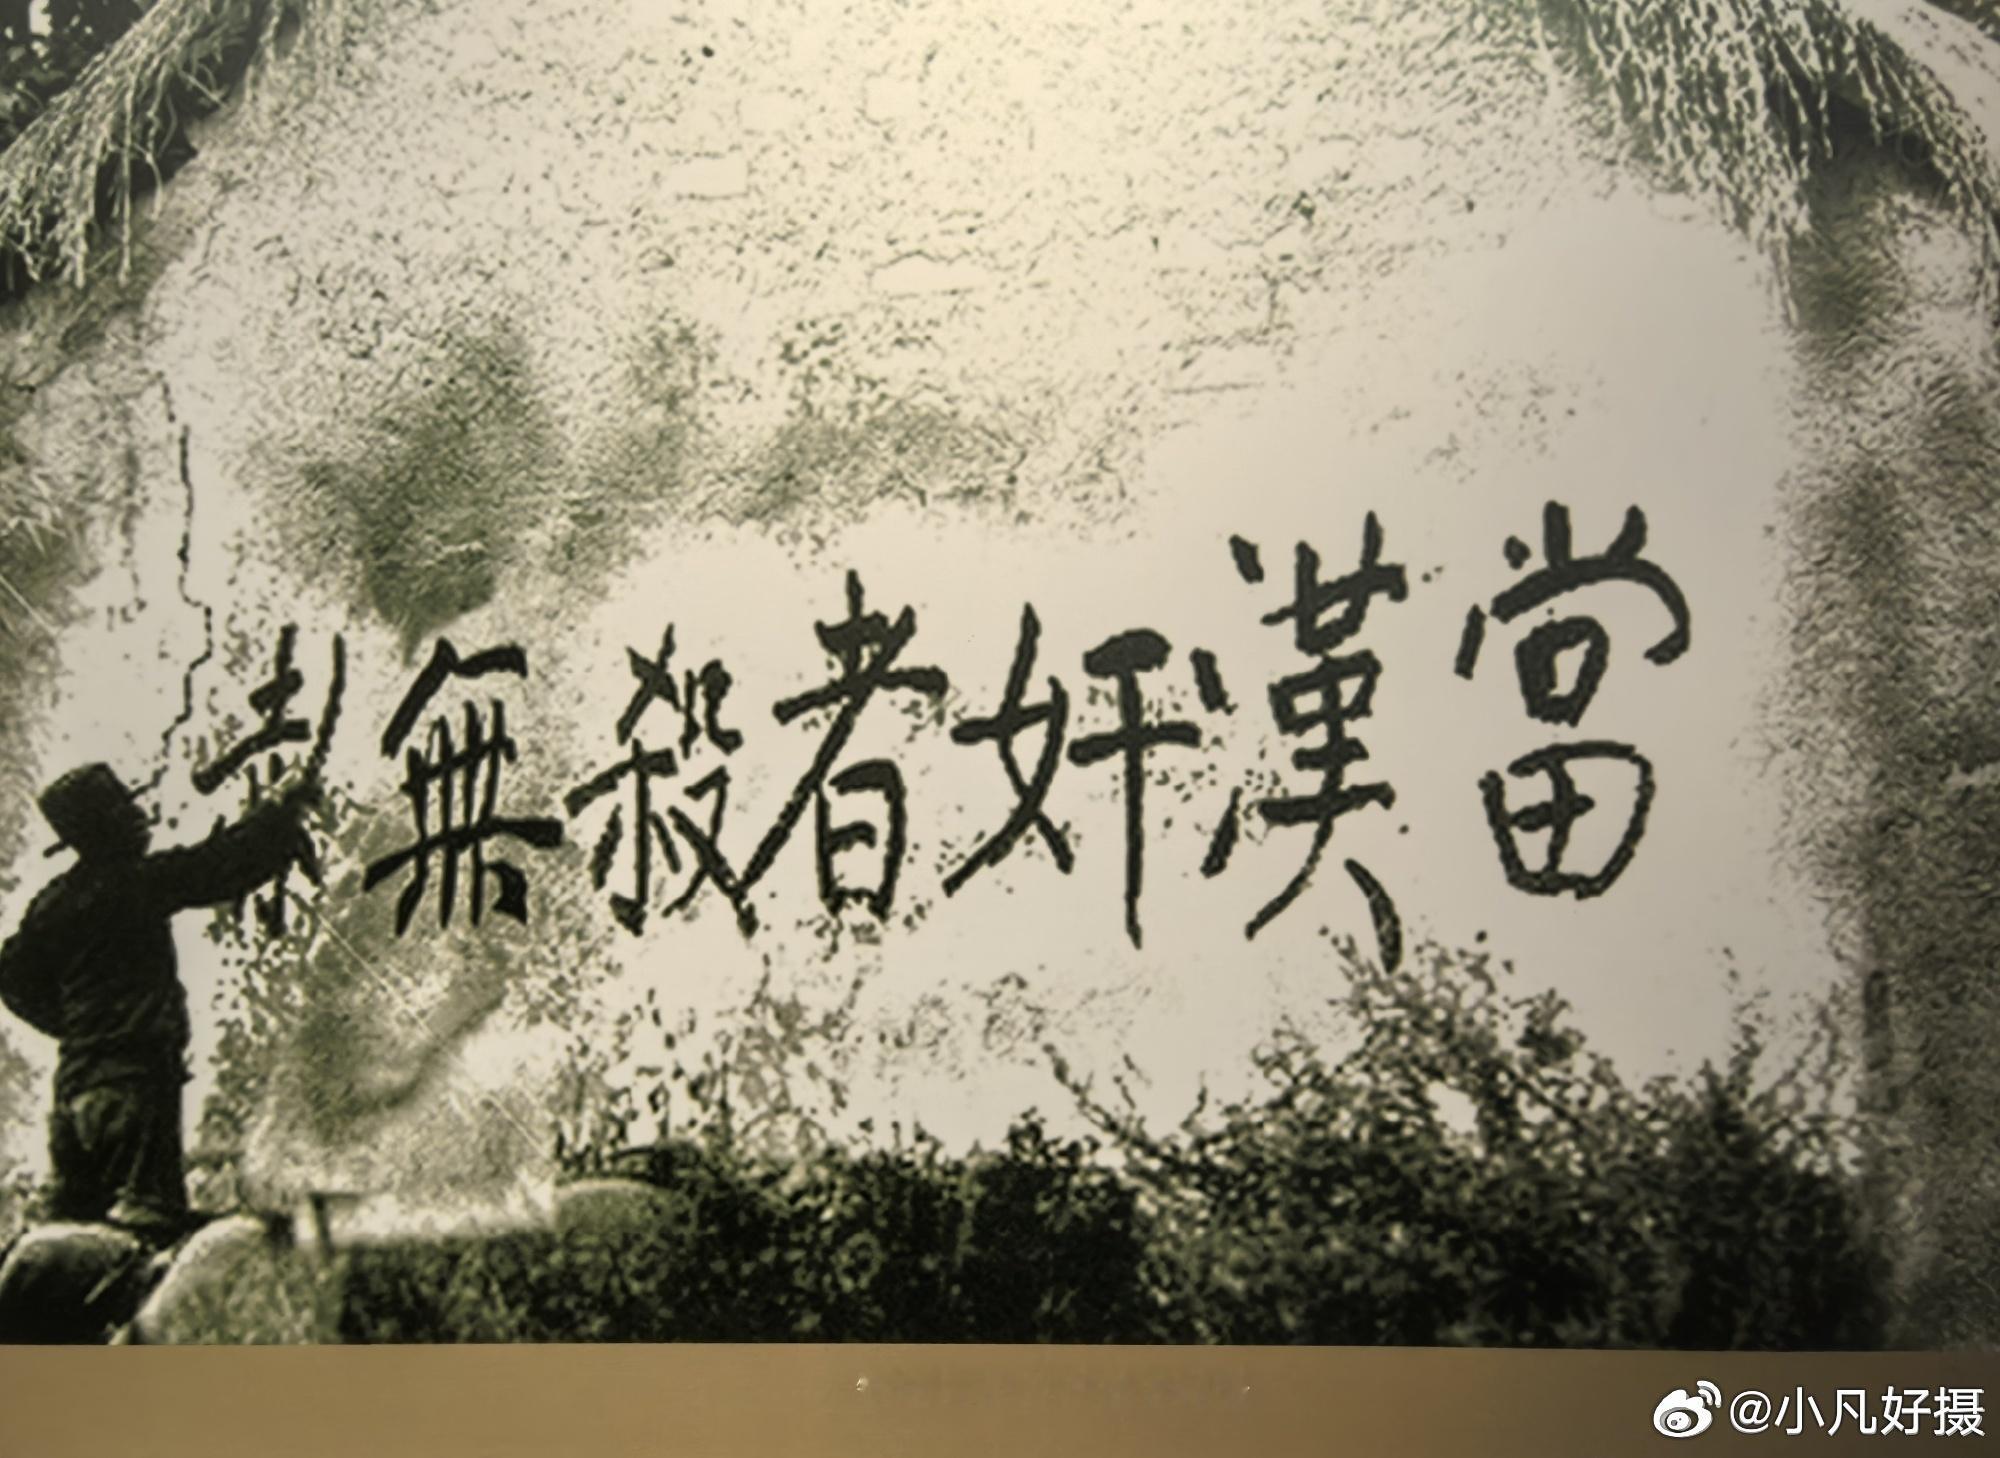 當漢奸者殺無赦
@小凡好摄